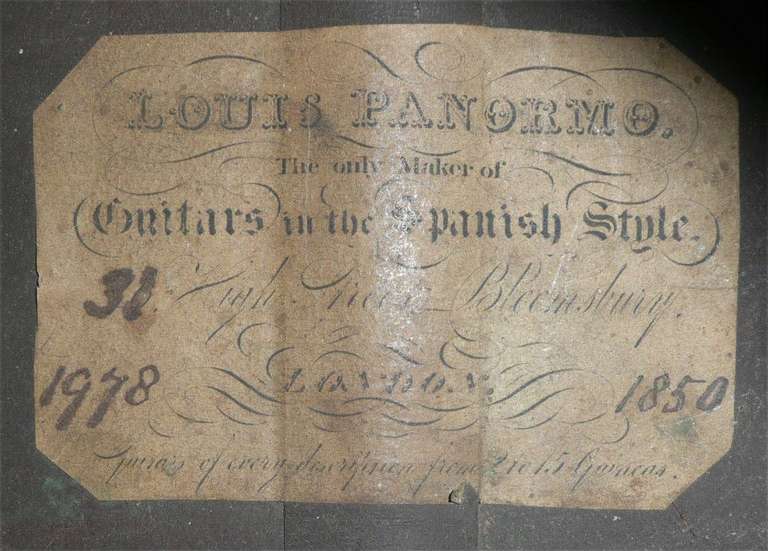 LOUIS PANORMO.
The only Maker of
Guitars in the Spanish Style.
High Street Bloomsbury.
LONDON.
1978 1850
Guitars of every description from 2 to 15 Guineas.